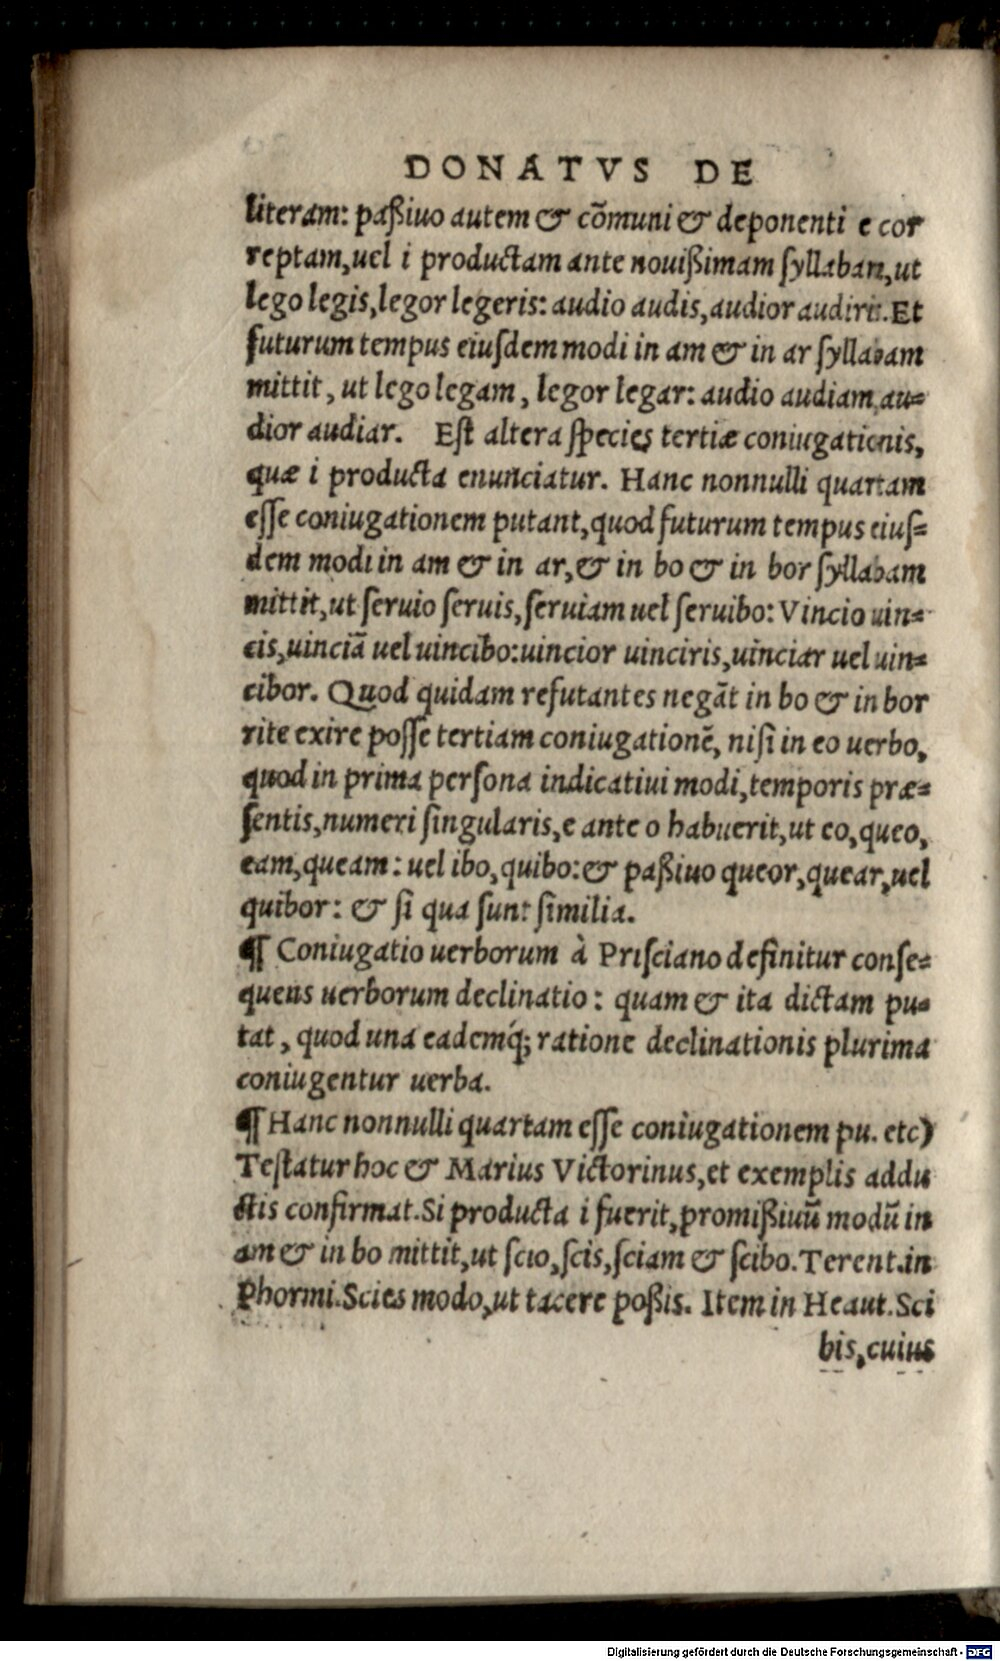 DONATVS DE
literam: paßiuo autem & cõmuni & deponenti e cor
reptam, uel i productam ante nouißimam ſyllabam, ut
lego legis, legor legeris: audio audis, audior audiris. Et
futurum tempus eiuſdem modi in am & in ar ſyllabam
mittit, ut lego legam, legor legar: audio audiam, au=
dior audiar. Eſt altera ſpecies tertiæ coniugationis,
quæ i producta enunciatur. Hanc nonnulli quartam
eſſe coniugationem putant, quod futurum tempus eiuſ=
dem modi in am & in ar, & in bo & in bor ſyllabam
mittit, ut ſeruio ſeruis, ſeruiam uel ſeruibo: Vincio uin=
cis, uinciã uel uincibo: uincior uinciris, uinciar uel uin=
cibor. Quod quidam refutantes negãt in bo & in bor
rite exire poſſe tertiam coniugationẽ, niſi in eo uerbo,
quod in prima perſona indicatiui modi, temporis præ=
ſentis, numeri ſingularis, e ante o habuerit, ut eo, queo,
eam, queam: uel ibo, quibo: & paßiuo queor, quear, uel
quibor: & ſi qua ſunt ſimilia.
¶ Coniugatio uerborum à Priſciano definitur conſe=
quens uerborum declinatio: quam & ita dictam pu=
tat, quod una eademq́; ratione declinationis plurima
coniugentur uerba.
¶ Hanc nonnulli quartam eſſe coniugationem pu. etc)
Teſtatur hoc & Marius Victorinus, et exemplis addu
ctis confirmat. Si producta i fuerit, promißiuũ modũ in
am & in bo mittit, ut ſcio, ſcis, ſciam & ſcibo. Terent. in
Phormi. Scies modo, ut tacere poßis. Item in Heaut. Sci
bis, cuius
Digitalisierung gefördert durch die Deutsche Forschungsgemeinschaft - DFG